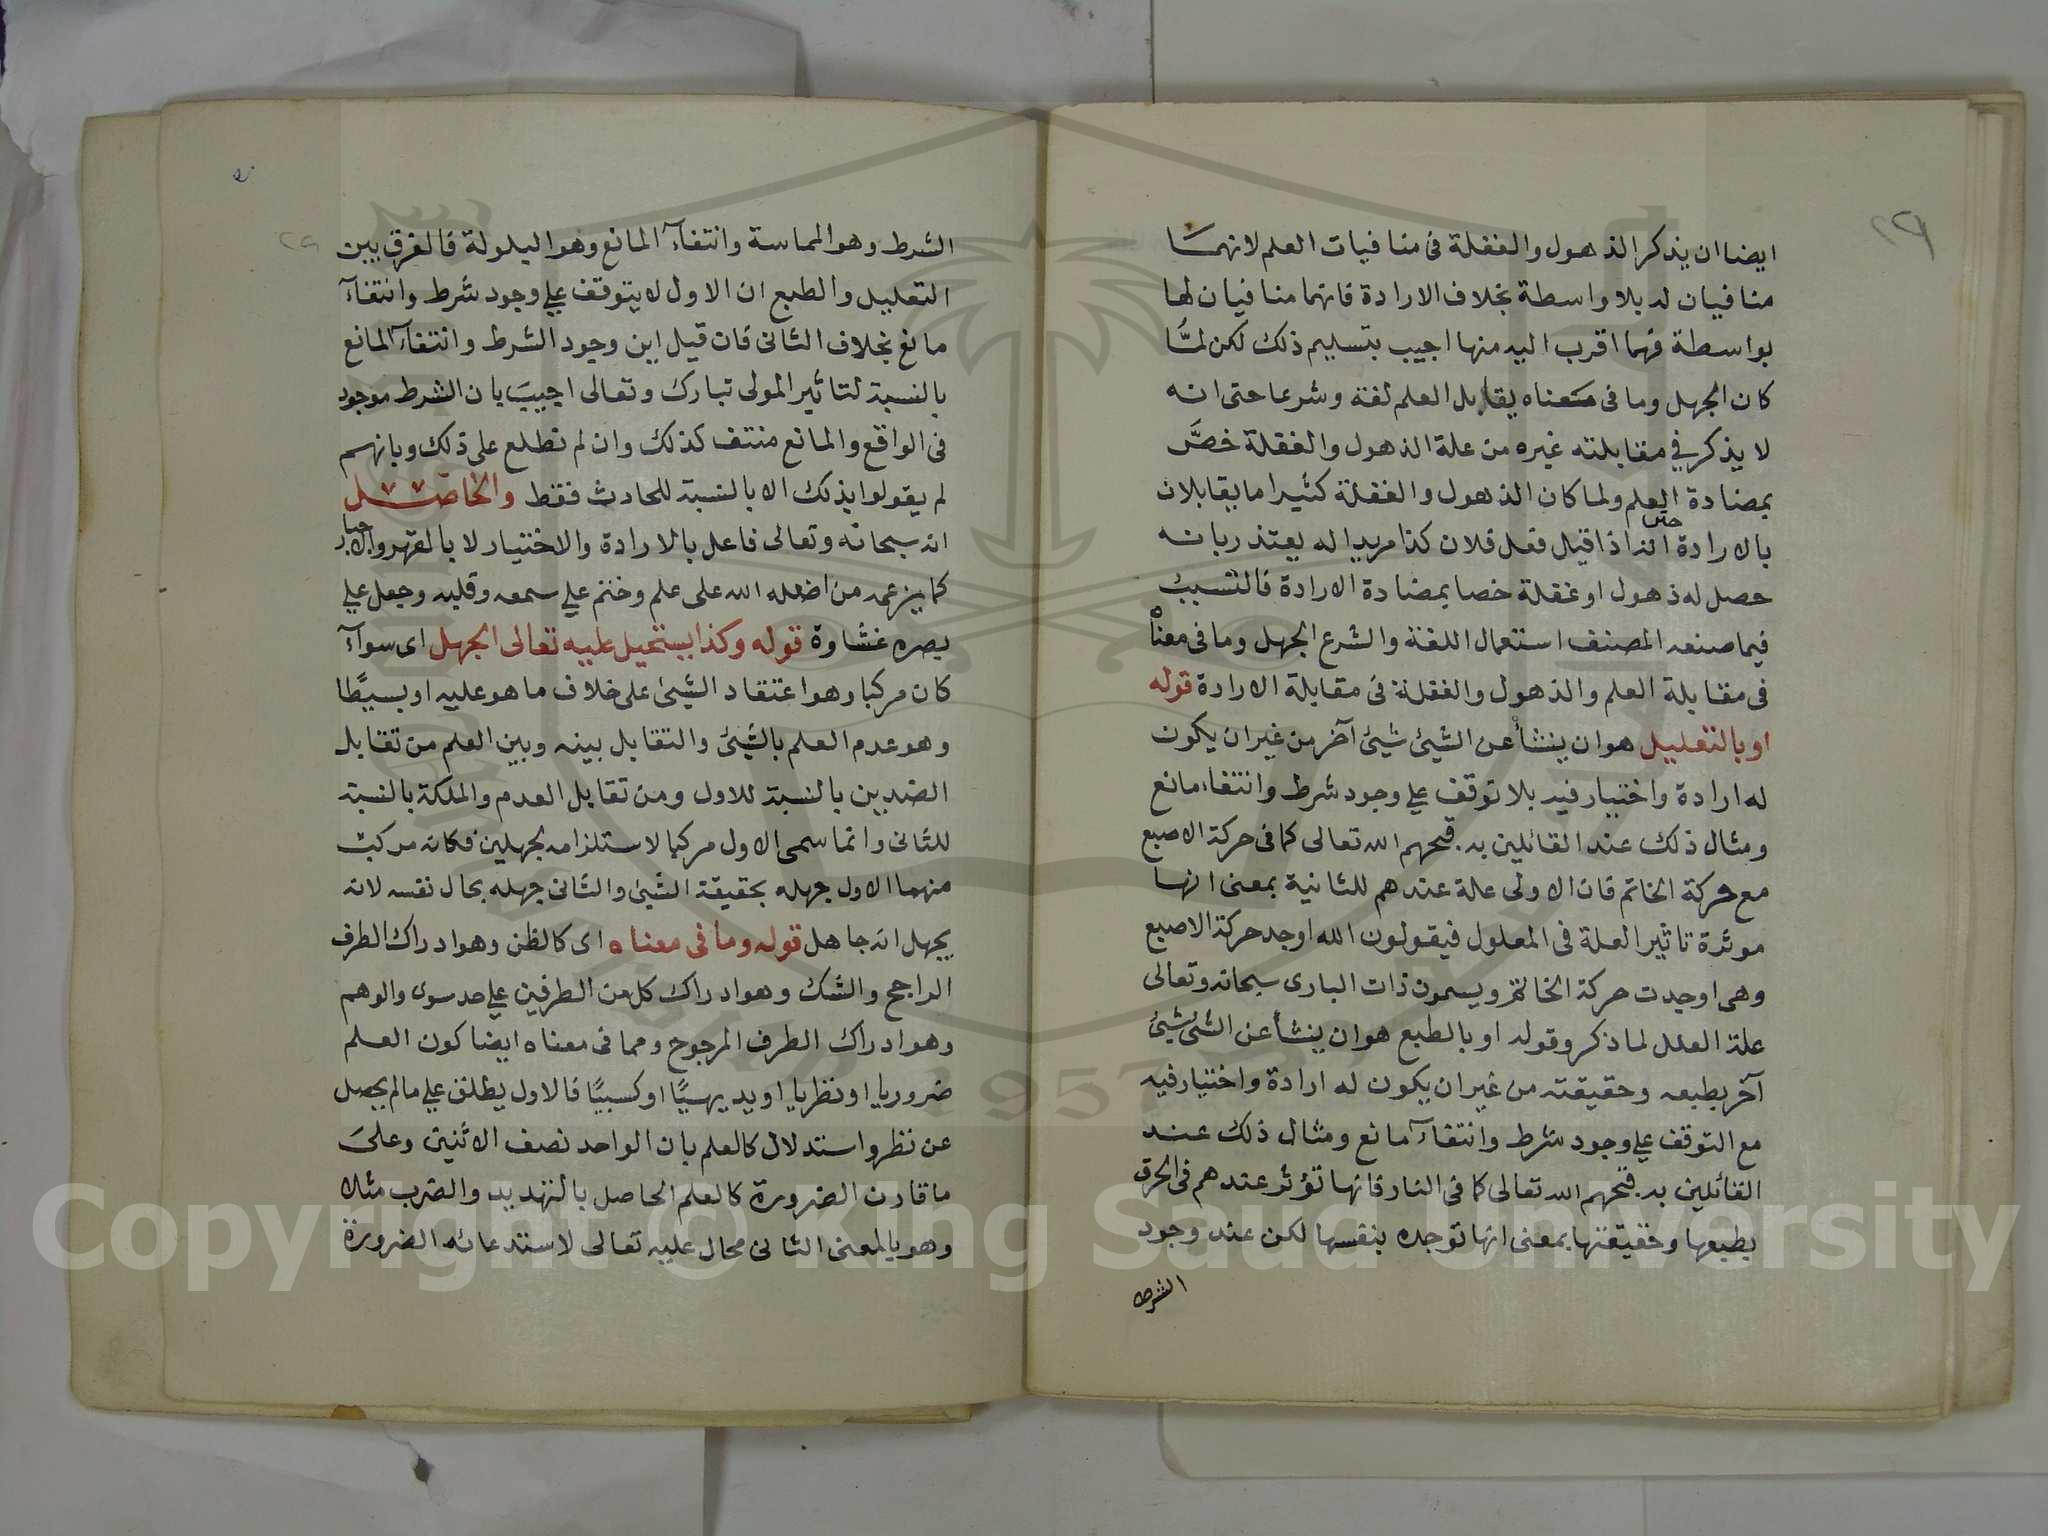 ايضا ان يذكر الذهول والغفلة فى منافيات العلم لانهما
منافيان له بلا واسطة بخلاف الارادة فانهما منافيان لها
بواسطة فهما اقرب اليه منها اجيب بتسليم ذلك لكن لمَّا
كان الجهل وما فى معناه يقابل العلم لغة وشرعا حتى انه
لا يذكر في مقابلته غيره من علة الذهول والغفلة خصَّ
بمضادة العلم ولما كان الذهول والغفلة كثيرا ما يقابلان
بالارادة حتى انه اذا قيل فعل فلان كذا مريدا له يعتذر بانه
حصل له ذهول او غفلة خصا بمضادة الارادة فالتسبب
فيما صنعه المصنف استعمال اللغة والشرع الجهل وما فى معناه
فى مقابلة العلم والذهول والغفلة فى مقابلة الارادة قوله
او بالتعليل هو ان ينشأ عن الشيئ شيئ آخر من غير ان يكون
له ارادة واختيار فيه بلا توقف علي وجود شرط وانتفاء مانع
ومثال ذلك عند القائلين به قبحهم الله تعالى كما فى حركة الاصبع
مع حركة الخاتم فان الاولى علة عندهم للثانية بمعنى انها
موثرة تاثير العلة فى المعلول فيقولون الله اوجد حركة الاصبع
وهى اوجدت حركة الخاتم ويسمون ذات البارى سبحانه وتعالى
علة العلل لما ذكر وقوله او بالطبع هو ان ينشأ عن الشئ شيئ
آخر بطبعه وحقيقته من غير ان يكون له ارادة واختيار فيه
مع التوقف علي وجود شرط وانتفآء مانع ومثال ذلك عند
القائلين به قبحهم الله تعالى كما فى النار فانها تؤثر عندهم فى الحرق
بطبعها وحقيقتها بمعنى انها توجده بنفسها لكن عند وجود
الشرط
الشرط وهو المماسة وانتفآء المانع وهو البلولة فالفرق بين
التعليل والطبع ان الاول لا يتوقف علي وجود شرط وانتفآء
مانع بخلاف الثانى فان قيل اين وجود الشرط وانتفآء المانع
بالنسبة لتاثير المولى تبارك وتعالى اجيب بان الشرط موجود
فى الواقع والمانع منتف كذلك وان لم نطلع على ذلك وبانهم
لم يقولوا بذلك الا بالنسبة للحادث فقط والحاصل
انه سبحانه وتعالى فاعل بالارادة والاختيار لا بالقهر والاجبار
كما يزعمه من اضله الله على علم وختم علي سمعه وقلبه وجعل علي
بصره غشاوة قوله وكذا يستحيل عليه تعالى الجهل اى سوآء
كان مركبا وهو اعتقاد الشيئ على خلاف ما هو عليه او بسيطًا
وهو عدم العلم بالشيئ والتقابل بينه وبين العلم من تقابل
الضدين بالنسبة للاول ومن تقابل العدم والملكة بالنسبة
للثانى وانما سمى الاول مركبا لاستلزامه لجهلين فكانه مركب
منهما الاول جهله بحقيقة الشيئ والثانى جهله بحال نفسه لانه
يجهل انه جاهل قوله وما فى معناه اى كالظن وهو ادراك الطرف
الراجح والشك وهو ادراك كل من الطرفين علي حد سوى والوهم
وهو ادراك الطرف المرجوح ومما فى معناه ايضا كون العلم
ضروريا او نظريا او بديهيًّا او كسبيًّا فالاول يطلق علي ما لم يحصل
عن نظر واستدلال كالعلم بان الواحد نصف الاثنين وعلىَ
ما قارن الضرورة كالعلم الحاصل بالتهديد والضرب مثلا
وهو بالمعنى الثانى محال عليه تعالى لاستدعائه الضرورة
Copyright © King Saud University
1957